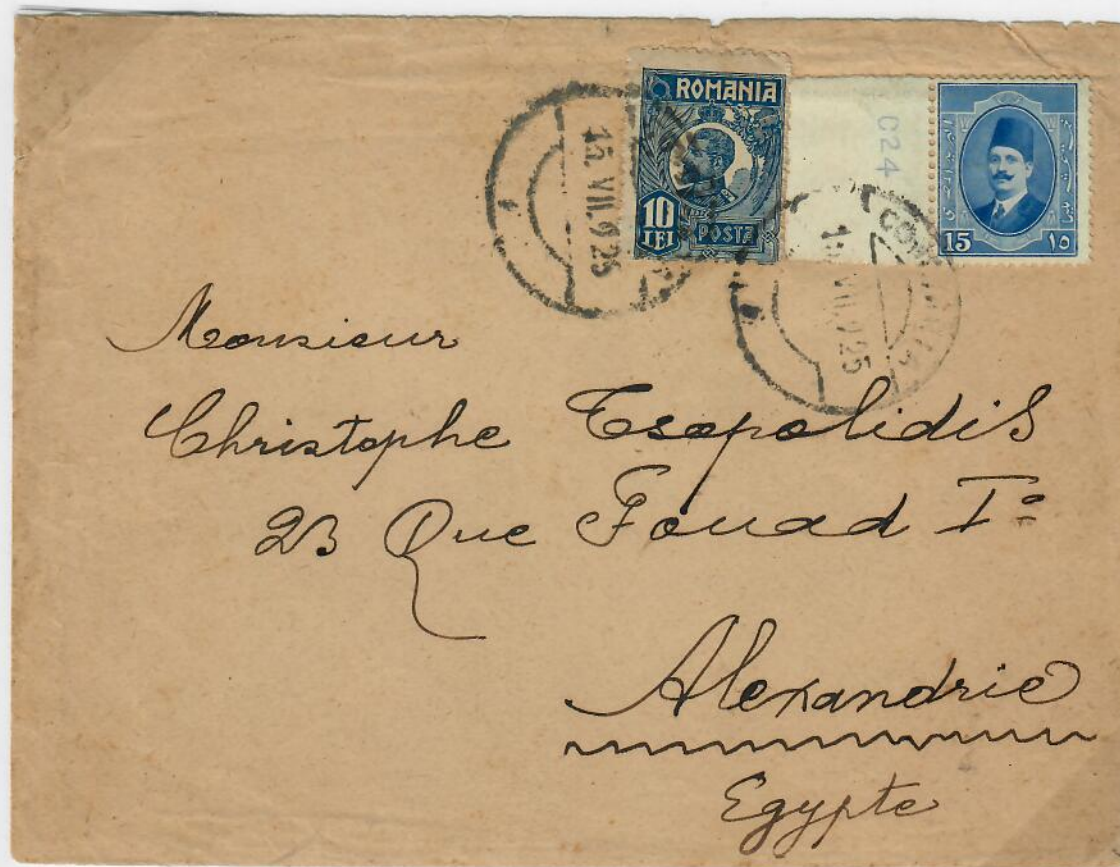 ROMANIA
10
LEI
POSTA
024
15
١٥
15. VII. 925
VII. 925
CONSTANTA
Monsieur
Christophe Tsopolidis
23 Rue Fouad Iº
Alexandrie
Egypte